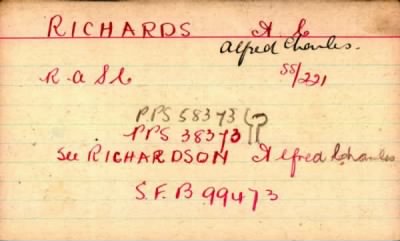 RICHARDS A. C
Alfred Charles.
R A S C SS/221
PPS 58373 ?
PPS 38373 ?
See RICHARDSON Alfred Charles
S.F.B 99473